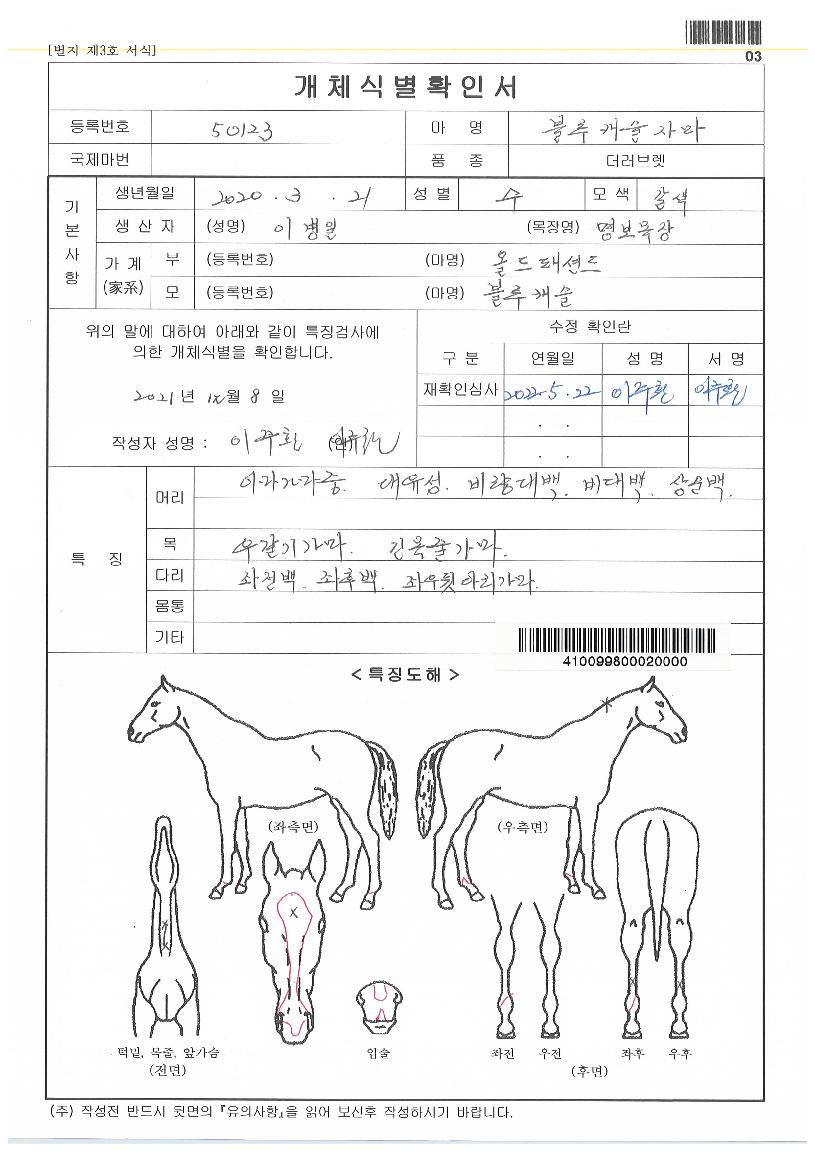 [별지 제3호 서식]
03
개체식별확인서
등록번호 50123 마 명 블루캐슬자마
국제마번 품 종 더러브렛
기본사항
생년월일 2020 . 3 . 21 성별 수 모색 갈색
생산자 (성명) 이병일 (목장명) 명보목장
가계(家系) 부 (등록번호) (마명) 올드패션드
모 (등록번호) (마명) 블루캐슬
위의 말에 대하여 아래와 같이 특징검사에
의한 개체식별을 확인합니다.
2021년 12월 8일
작성자 성명 : 이주환 (인)
수정 확인란
구 분 연월일 성 명 서 명
재확인심사 2022.5.22 이주환 이주환
. .
. .
특 징
머리 이마가마중. 대유성. 비량대백. 비대백. 상순백.
목 우갈기가마. 긴목줄가마.
다리 좌전백. 좌후백. 좌우뒷다리가마.
몸통
기타
410099800020000
< 특징도해 >
(좌측면) (우측면)
턱밑, 목줄, 앞가슴
(전면)
입술
좌전 우전 좌후 우후
(후면)
(주) 작성전 반드시 뒷면의 『유의사항』을 읽어 보신후 작성하시기 바랍니다.